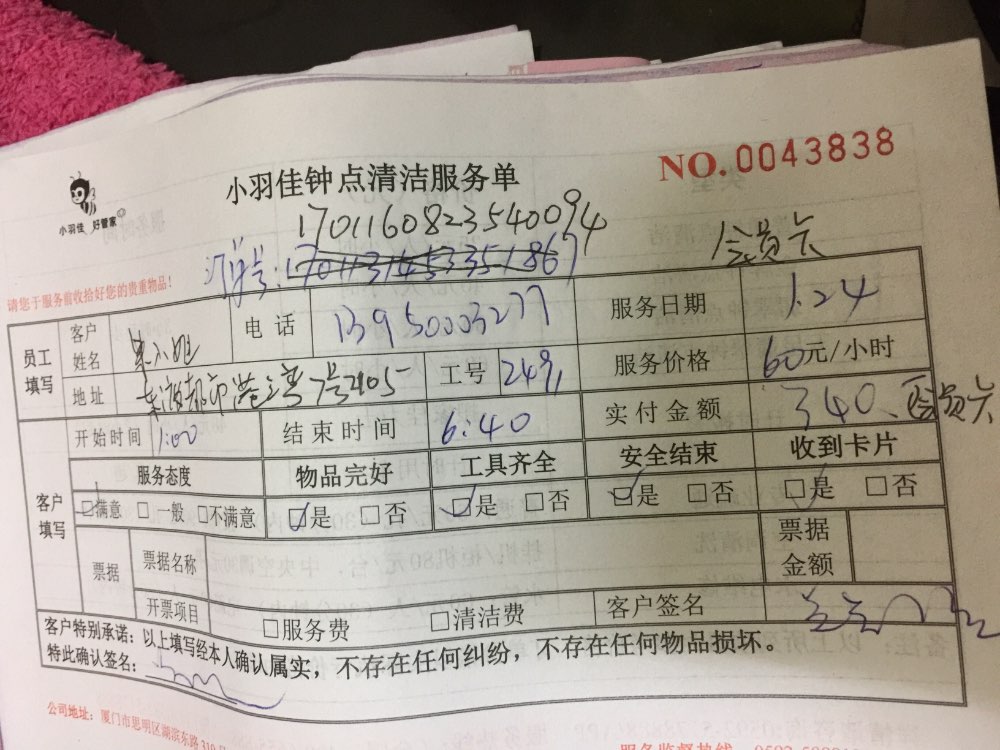 NO.0043838
小羽佳 好管家
小羽佳钟点清洁服务单
1701160823540094
会员卡
请您于服务前收拾好您的贵重物品!
员工填写 客户姓名 电话 13950003277 服务日期 1.24
地址 工号 2491 服务价格 60元/小时
客户填写 开始时间 1:00 结束时间 6:40 实付金额 340、会员卡
服务态度 物品完好 工具齐全 安全结束 收到卡片
□满意 □一般 □不满意 □是 □否 □是 □否 □是 □否 □是 □否
票据 票据名称 票据金额
开票项目 □服务费 □清洁费 客户签名
客户特别承诺:以上填写经本人确认属实,不存在任何纠纷,不存在任何物品损坏。
特此确认签名:
公司地址:厦门市思明区湖滨东路
服务监督热线